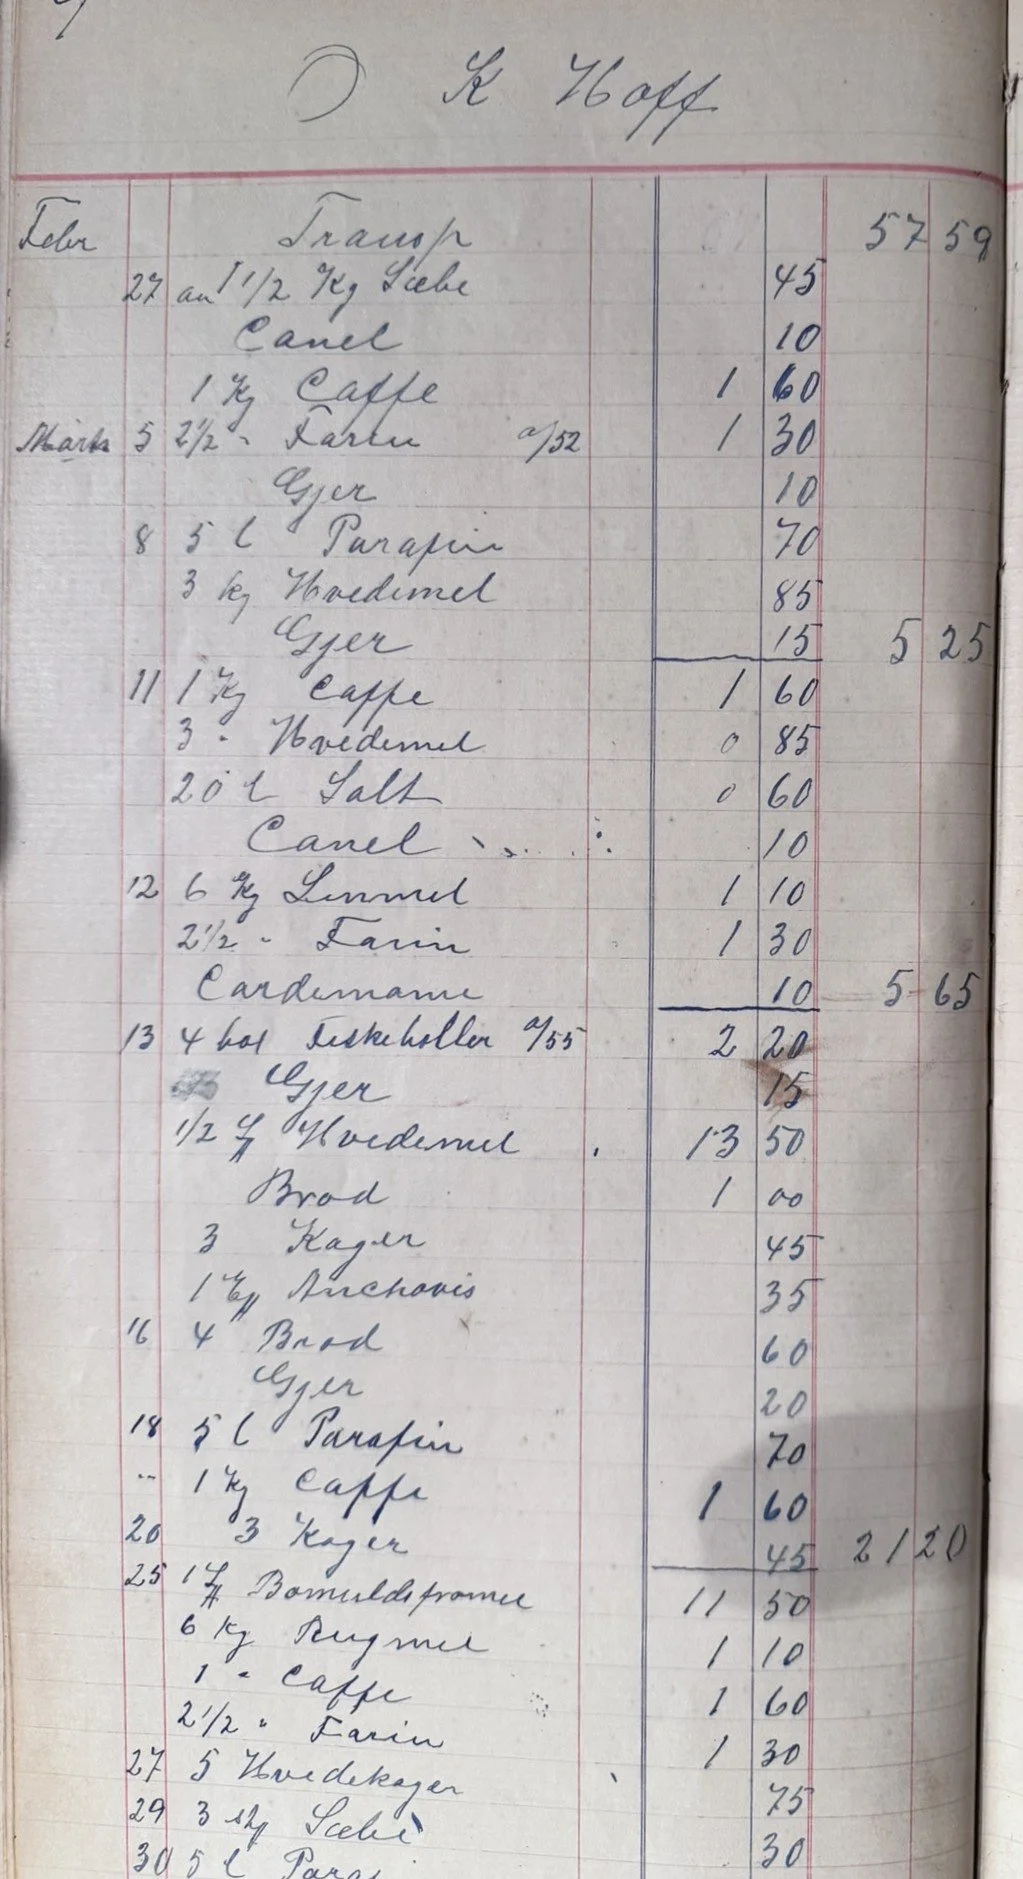 K Hoff
Febr Transp 57 59
27 an 1 1/2 Kg Sæbe 45
Canel 10
1 Kg Caffe 1 60
Marts 5 2 1/2 " Farin a/52 1 30
Gjer 10
8 5 l Parafin 70
3 kg Hvedemel 85
Gjer 15 5 25
11 1 Kg Caffe 1 60
3 " Hvedemel 0 85
20 l Salt 0 60
Canel 10
12 6 Kg 1 10
2 1/2 " Farin 1 30
Cardemome 10 5 65
13 4 box Fiskeboller a/55 2 20
Gjer 15
1/2 Hvedemel 13 50
Brod 1 00
3 Kager 45
1 Anchovis 35
16 4 Brod 60
Gjer 20
18 5 l Parafin 70
" 1 Kg Caffe 1 60
20 3 Kager 45 21 20
25 1 11 50
6 Kg Rugmel 1 10
1 " Caffe 1 60
2 1/2 " Farin 1 30
27 5 Hvedekager 75
29 3 Sæbe 30
30 5 l